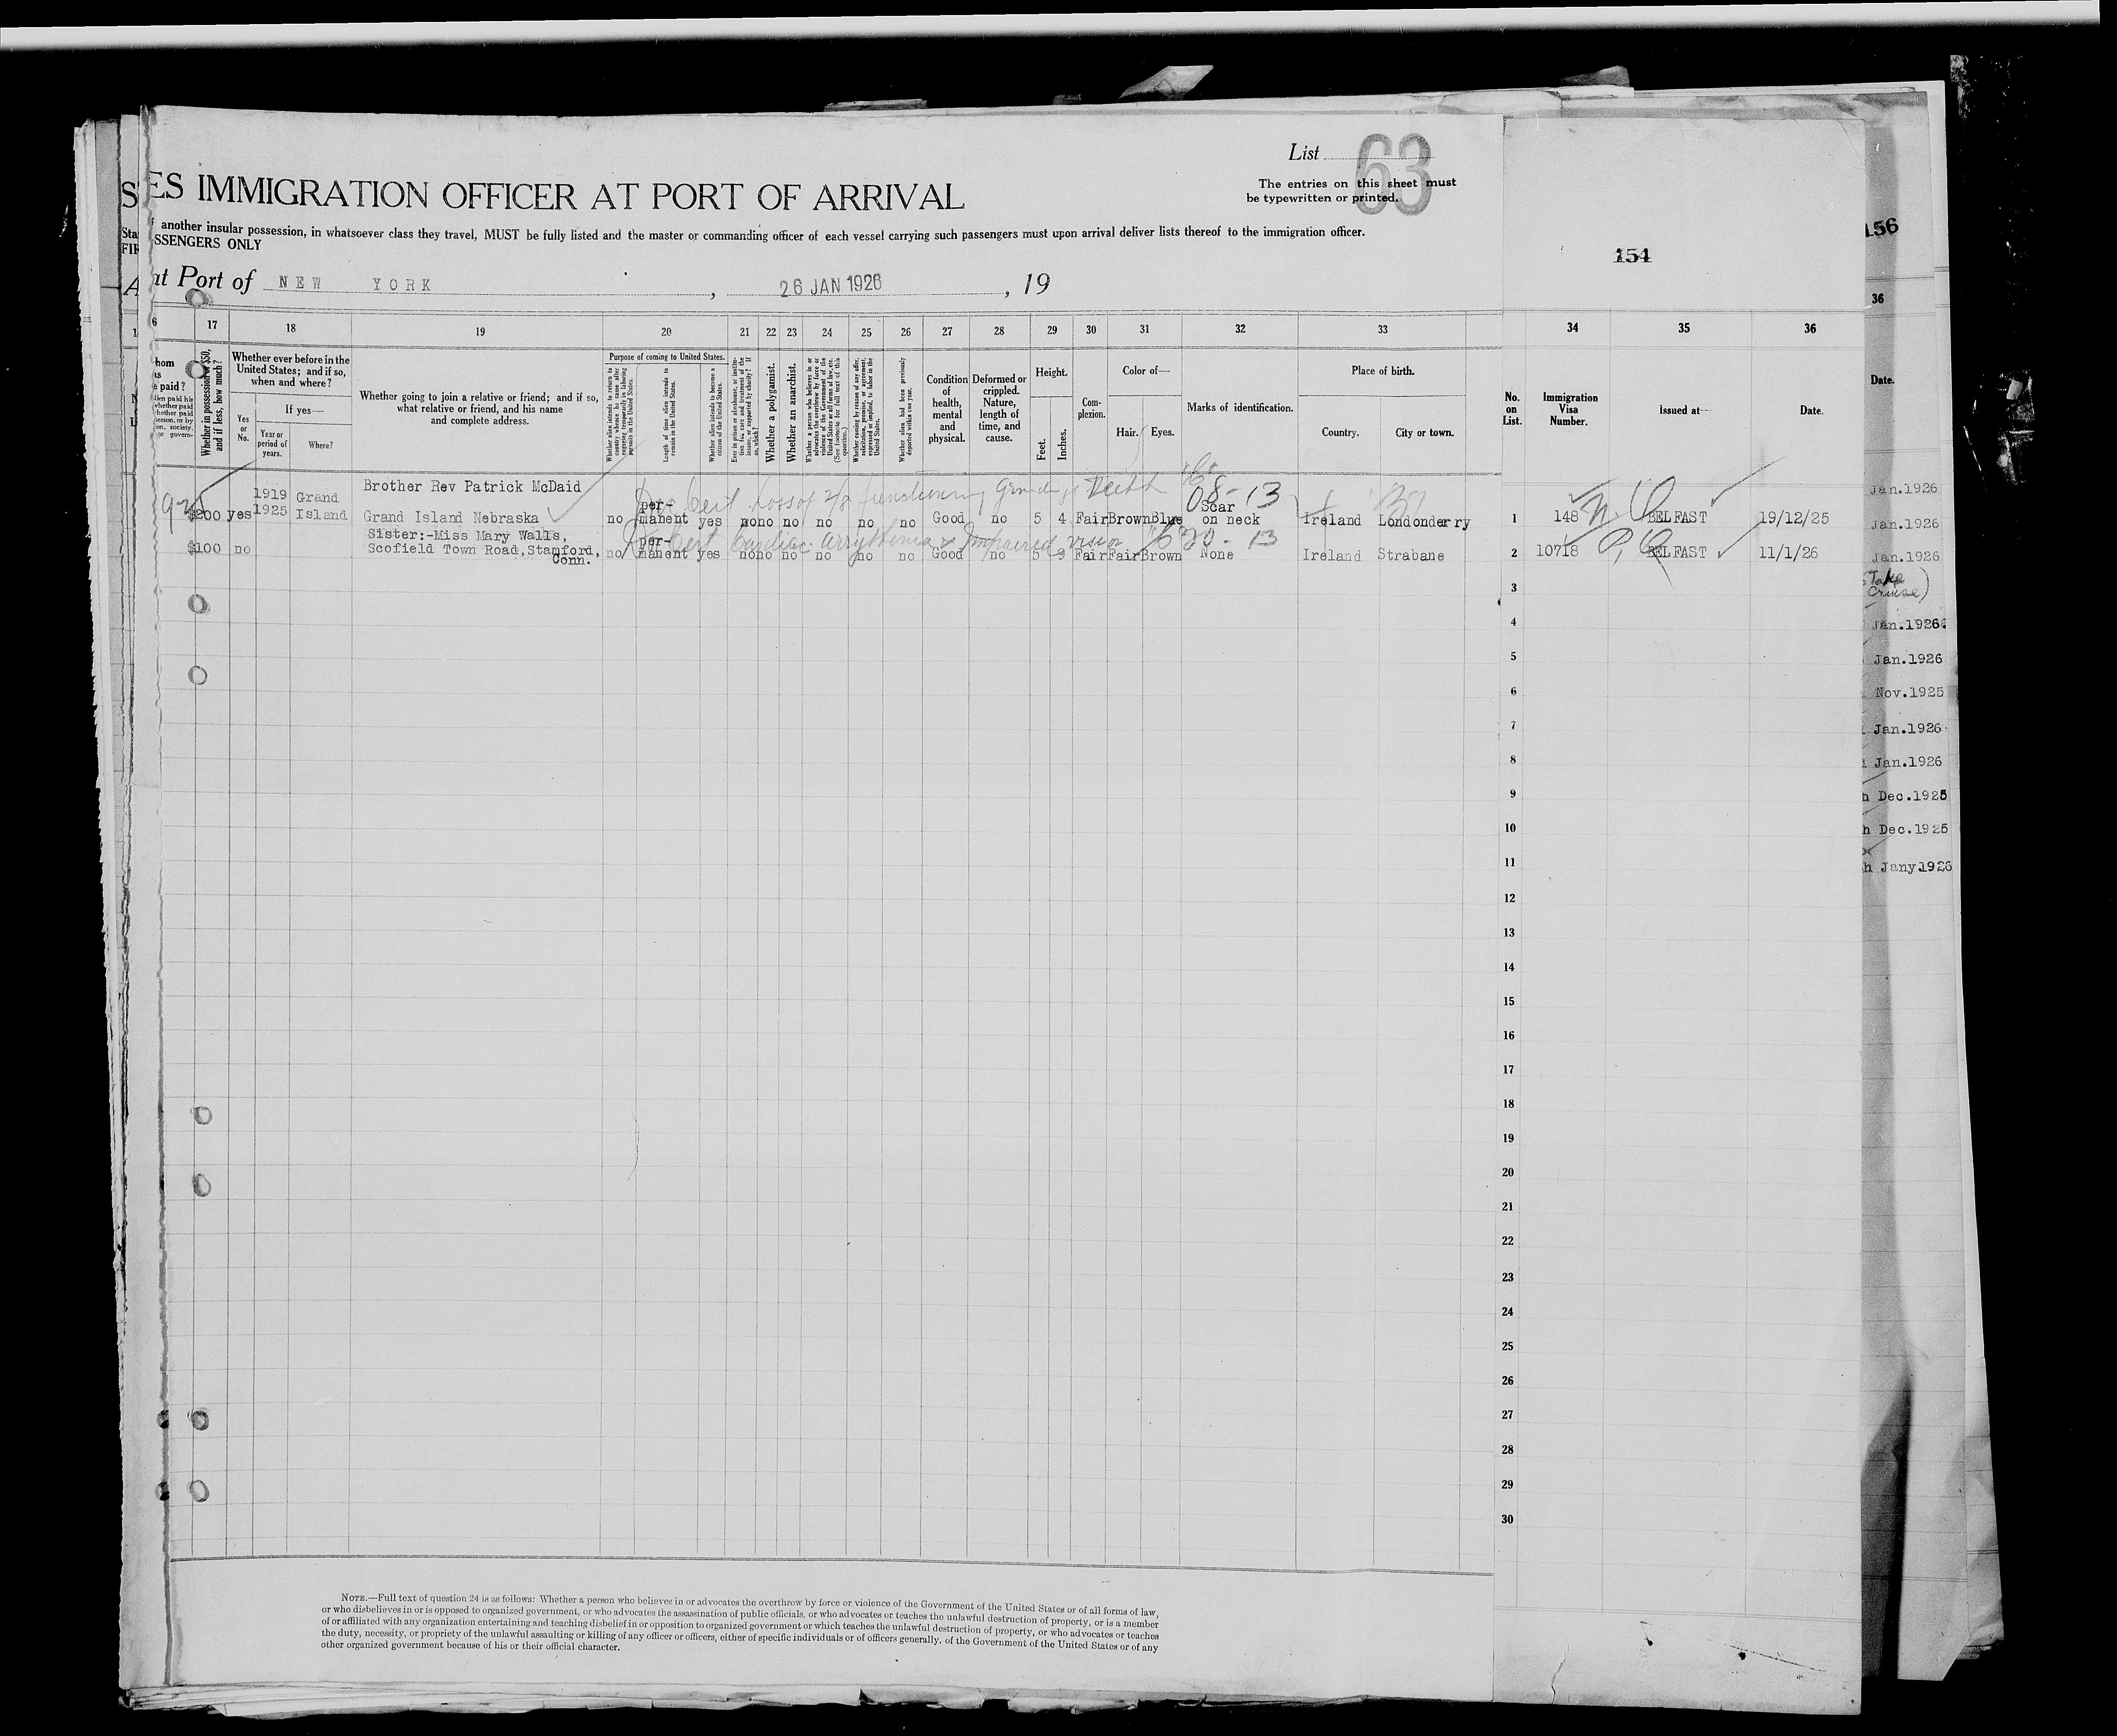 List 63
The entries on this sheet must
be typewritten or printed.
ES IMMIGRATION OFFICER AT PORT OF ARRIVAL
f another insular possession, in whatsoever class they travel, MUST be fully listed and the master or commanding officer of each vessel carrying such passengers must upon arrival deliver lists thereof to the immigration officer.
SSENGERS ONLY
154
156
at Port of NEW YORK , 26 JAN 1926 , 19
6 17 18 19 20 21 22 23 24 25 26 27 28 29 30 31 32 33 34 35 36
36
Whether in possession of $50, and if less, how much?
Whether ever before in the
United States; and if so,
when and where?
Yes
or
No.
If yes—
Year or
period of
years.
Where?
Whether going to join a relative or friend; and if so,
what relative or friend, and his name
and complete address.
Purpose of coming to United States.
Whether alien intends to return to country whence he came after engaging temporarily in laboring pursuits in the United States.
Length of time alien intends to remain in the United States.
Whether alien intends to become a citizen of the United States.
Whether a polygamist.
Whether an anarchist.
Whether alien had been previously deported within one year.
Condition
of
health,
mental
and
physical.
Deformed or
crippled.
Nature,
length of
time, and
cause.
Height.
Feet.
Inches.
Com-
plexion.
Color of—
Hair.
Eyes.
Marks of identification.
Place of birth.
Country.
City or town.
No.
on
List.
Immigration
Visa
Number.
Issued at—
Date.
Date.
Brother Rev Patrick McDaid
Cert Loss of 2/3 functioning grinding Teeth
8-13
1919 Grand
$200 yes 1925 Island Grand Island Nebraska no per-manent yes no no no no no no Good no 5 4 Fair Brown Blue Scar on neck Ireland Londonderry 1 148 BELFAST 19/12/25
Sister:-Miss Mary Walls,
Cert Cardiac arrythmia & Impaired vision
20-13
$100 no Scofield Town Road,Stamford, Conn. no per-manent yes no no no no no no Good no 5 9 Fair Fair Brown None Ireland Strabane 2 10718 BELFAST 11/1/26
3
4
5
6
7
8
9
10
11
12
13
14
15
16
17
18
19
20
21
22
23
24
25
26
27
28
29
30
Jan.1926
Jan.1926
Jan.1926
Cruise)
Jan.1926
Jan.1926
Nov.1925
Jan.1926
Jan.1926
h Dec.1925
h Dec.1925
h Jany.1926
NOTE.—Full text of question 24 is as follows: Whether a person who believes in or advocates the overthrow by force or violence of the Government of the United States or of all forms of law,
or who disbelieves in or is opposed to organized government, or who advocates the assassination of public officials, or who advocates or teaches the unlawful destruction of property, or is a member
of or affiliated with any organization entertaining and teaching disbelief in or opposition to organized government or which teaches the unlawful destruction of property, or who advocates or teaches
the duty, necessity, or propriety of the unlawful assaulting or killing of any officer or officers, either of specific individuals or of officers generally, of the Government of the United States or of any
other organized government because of his or their official character.